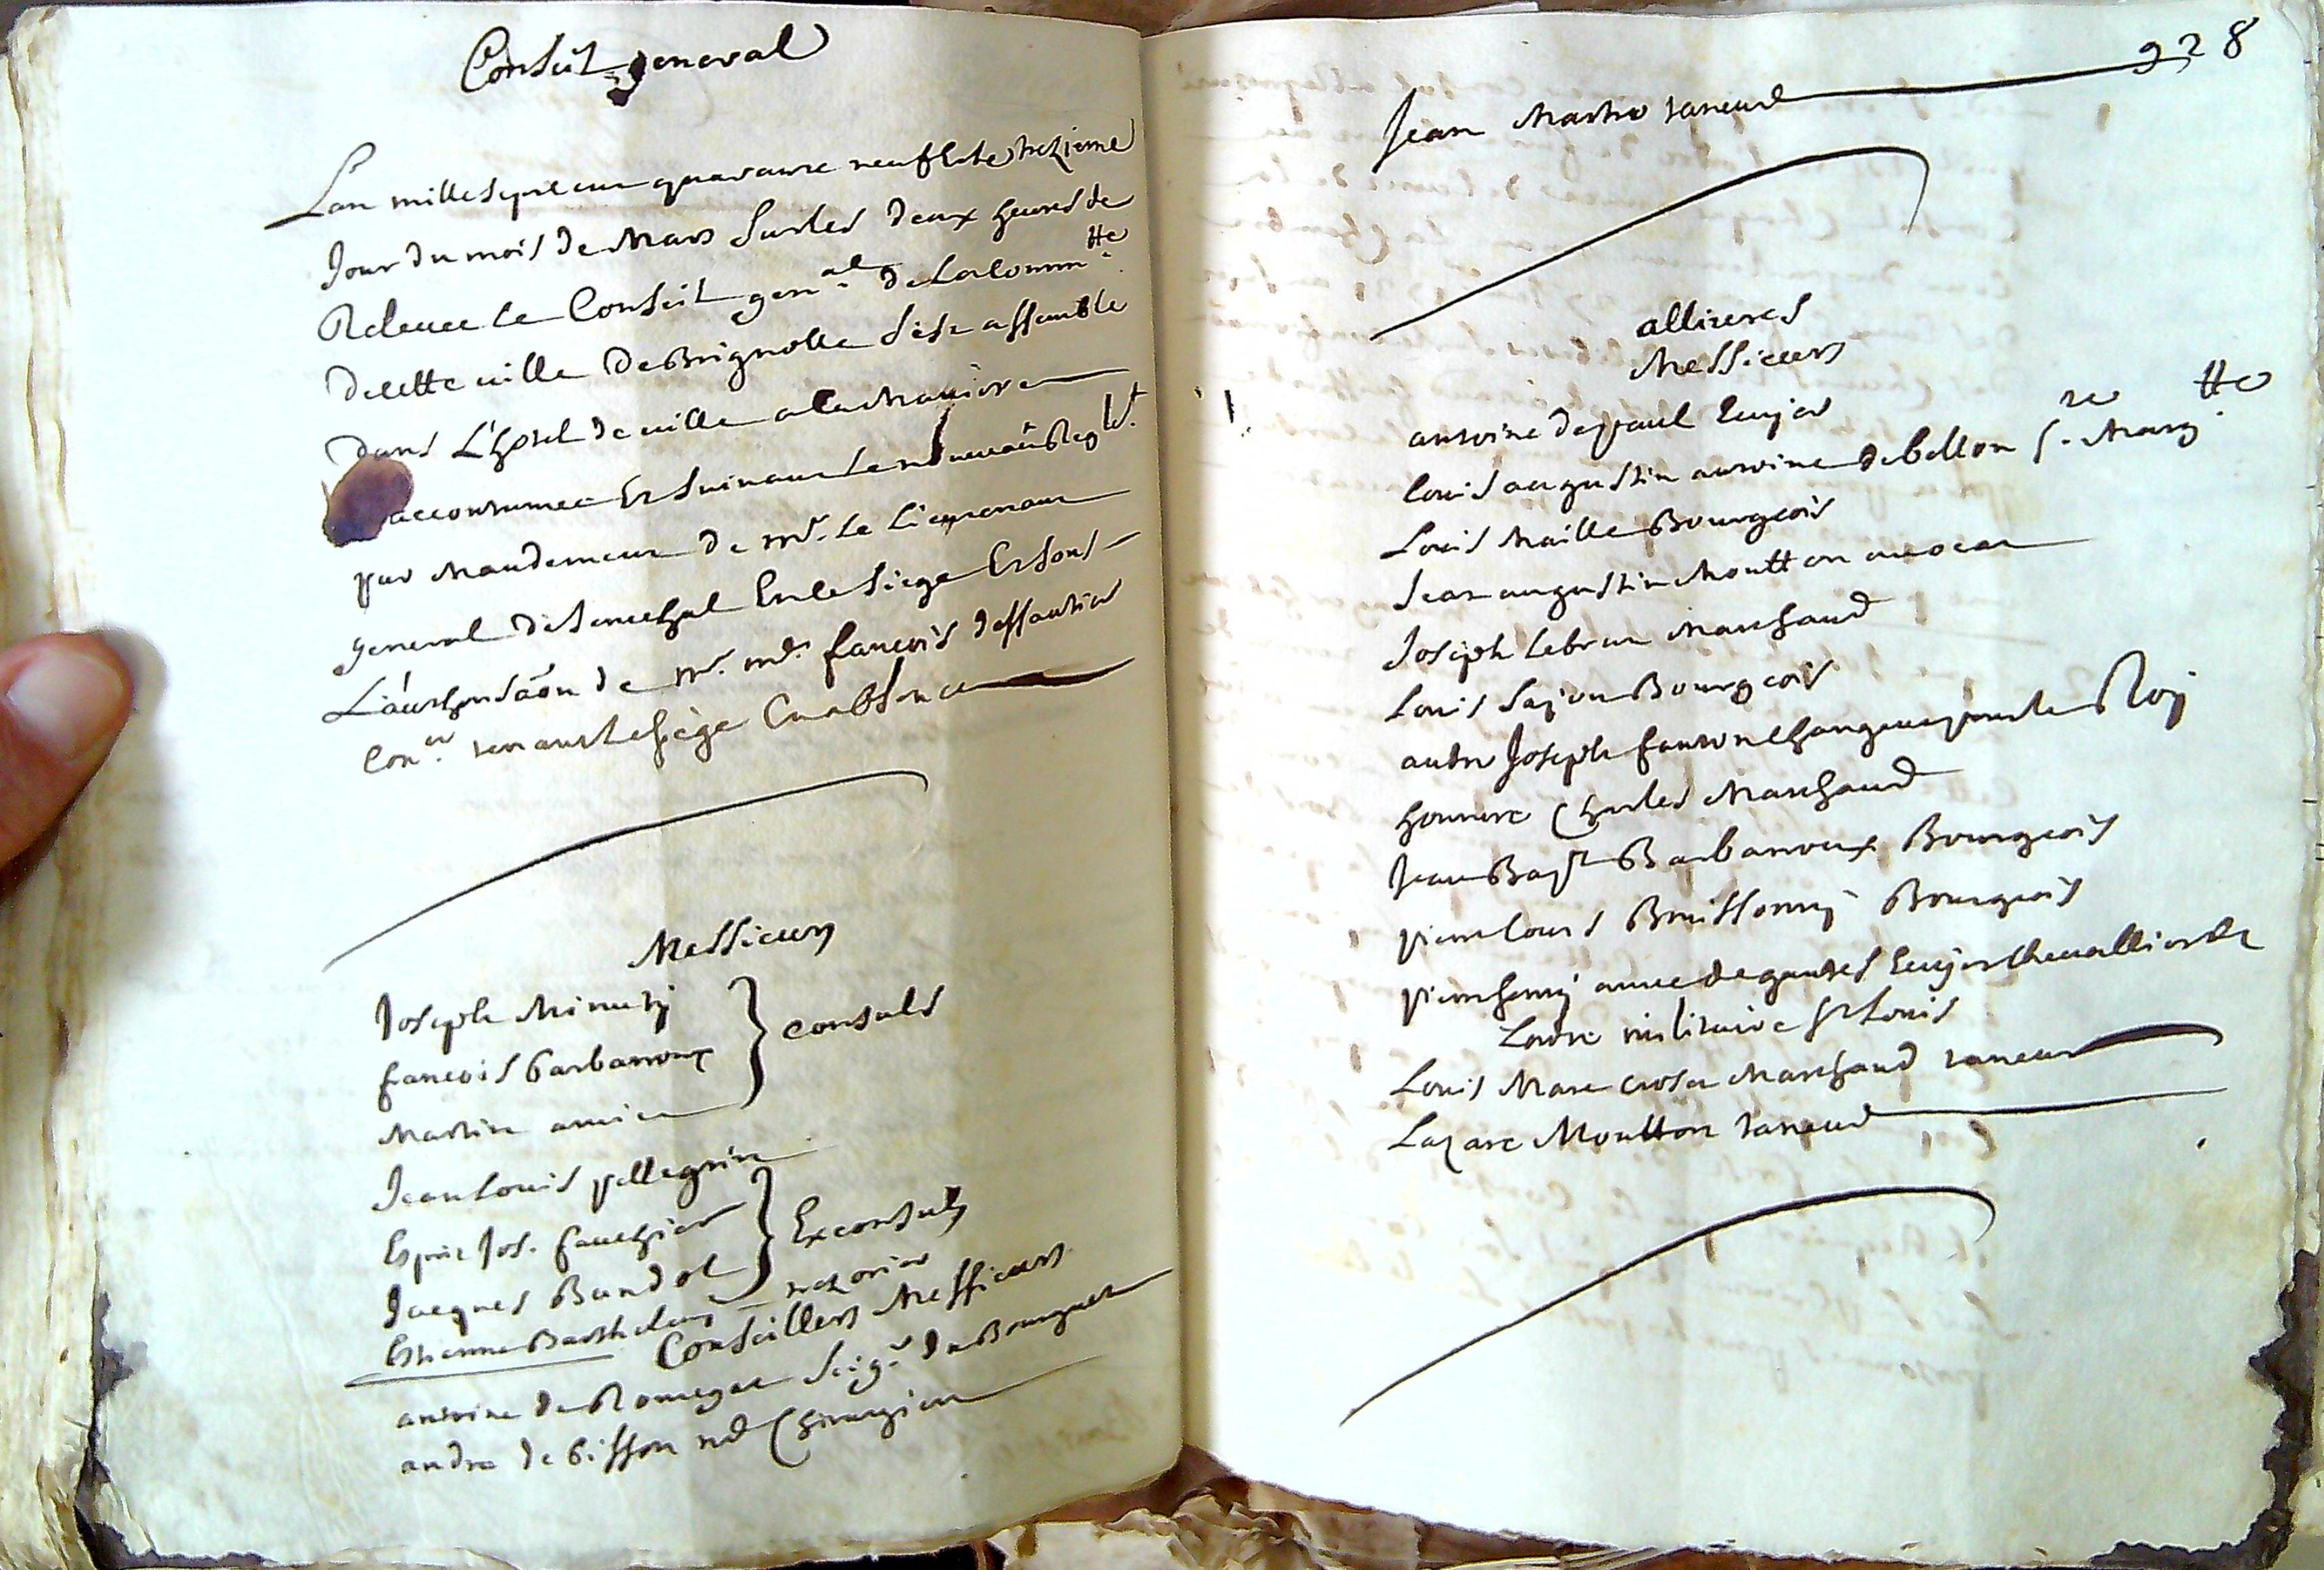 Conseil general
L'an mille sept cens quarante neuf et le treizieme
Jour du mois de Mars Sur les deux heures de
Releuee Le Conseil gen.al de La Comm.tté
De cette uille De Brignolle s'est assemblé
Dans L'hotel de uille a la Maniere
accoutumee Et Suiuant Le nouueau Regl.t
par Mandement De mr. Le Lieutenant
general de Senechal En Le Siege Et Sous
L'authorisãon De Mr. Me. françois dessautier
Con.er tenant Le siege En absence
Messieurs
Joseph Minuty
françois barbaroux
Martin amic
consuls
Jean Louis pellegrin
Esprit Jos. fauchier
Jacques Bandol
Exconsuls
Estienne Barthelemy trezorier
Conseillers Messieurs
antoine de Romegat Seigr. du Bourguet
andre de bisson me Chirurgien
928
Jean Martre taneur
allivrés
Messieurs
antoine de paul Ecuyer
Louis augustin antoine de bellon s.re Marg.tte
Louis Maille Bourgeois
Jean augustin Moutton auocat
Joseph Lebrun Marchand
Louis Bourgeois
autre Joseph fanton Changeur pour le Roy
honnore Charles Marchand
Jean Bapt. Barbaroux Bourgeois
pierre Louis Buissony Bourgeois
pierre henry de gantes Ecuyer Cheuallier de
Lordre militaire St Louis
Louis Marc crosa Marchand taneur
Lazare Moutton taneur